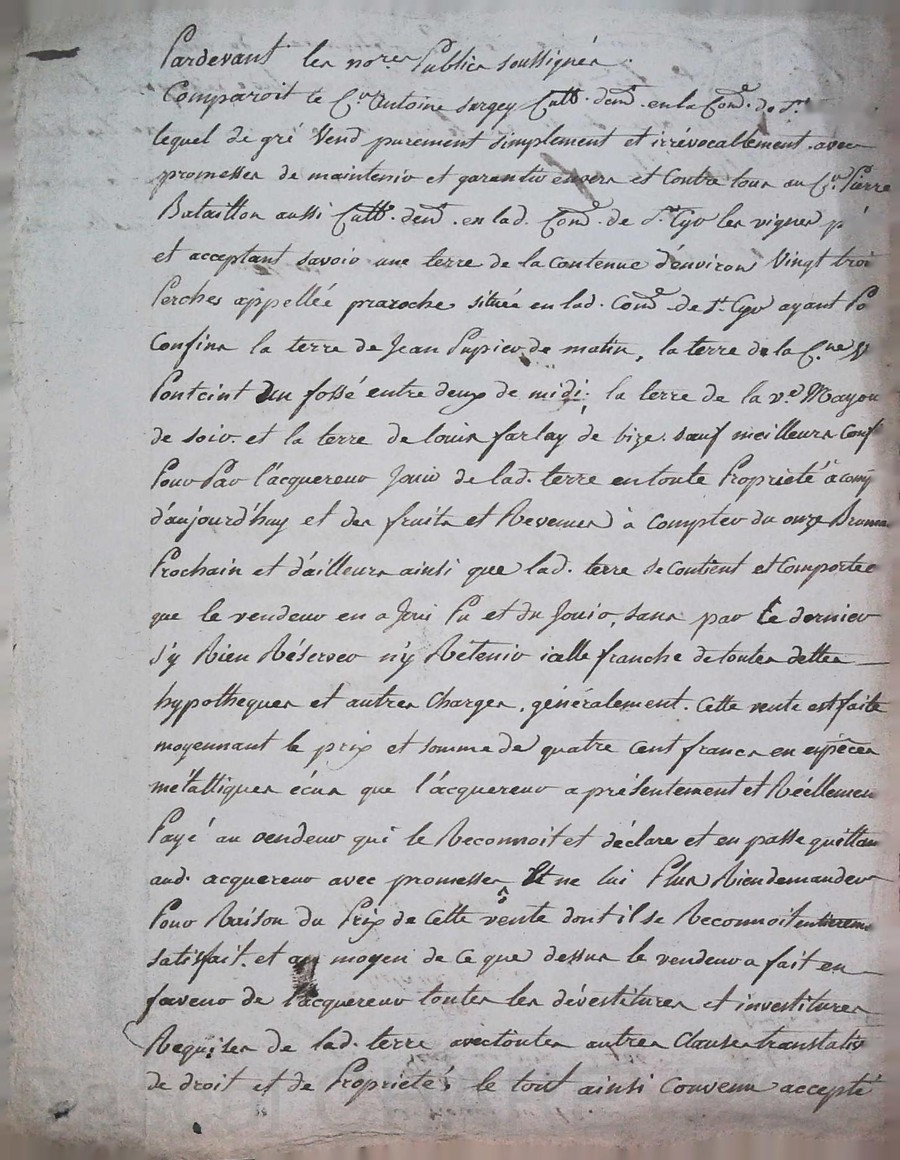 Pardevant les no.res Publics soussignés.
Comparoit le C.en Antoine Surgey Cult.r dem.t en la Com.e de S.t
lequel de gré Vend purement simplement et irrévocablement avec
promesses de maintenir et garantir envers et Contre tous au C.en Pierre
Bataillon aussi Cult.r dem.t en lad. Com.e de S.t Cyr les vignes p
et acceptant savoir une terre de la contenue d'environ Vingt troi
Perches appellée praroche située en lad. Com.e de S.t Cyr ayant Po
Confins la terre de Jean Pupier de matin, la terre de la C.ne
Ponteint un fossé entre deux de midi; la terre de la v.e Mayou
de soir. et la terre de louis farlay de bize. sauf meilleurs Conf
Pour Par l'acquereur Jouir de lad. terre en toute Propriété à comp
d'aujourd'huy et des fruits et Revenus à compter du onze Bruma
Prochain et d'ailleurs ainsi que lad. terre se Contient et Comporte
que le vendeur en a Joui Pu et du Jouir, sans par Ce dernier
s'y Rien Réserver n'y Retenir icelle franche de toutes dettes
hypotheques et autres Charges, généralement. Cette vente est faite
moyennant le prix et somme de quatre Cent francs en espèces
métalliques écus que l'acquereur a présentement et Réellemen
Payé au vendeur qui le Reconnoit et déclare et en passe quittan
aud. acquereur avec promesses de ne lui Plus Rien demander
Pour Raison du Prix de Cette vente dont il se Reconnoit entierem
satisfait. et au moyen de Ce que dessus le vendeur a fait en
faveur de l'acquereur toutes les dévestitures et investitures
Requises de lad. terre avec toutes autres Clauses translativ
de droit et de Propriété; le tout ainsi Convenu accepté